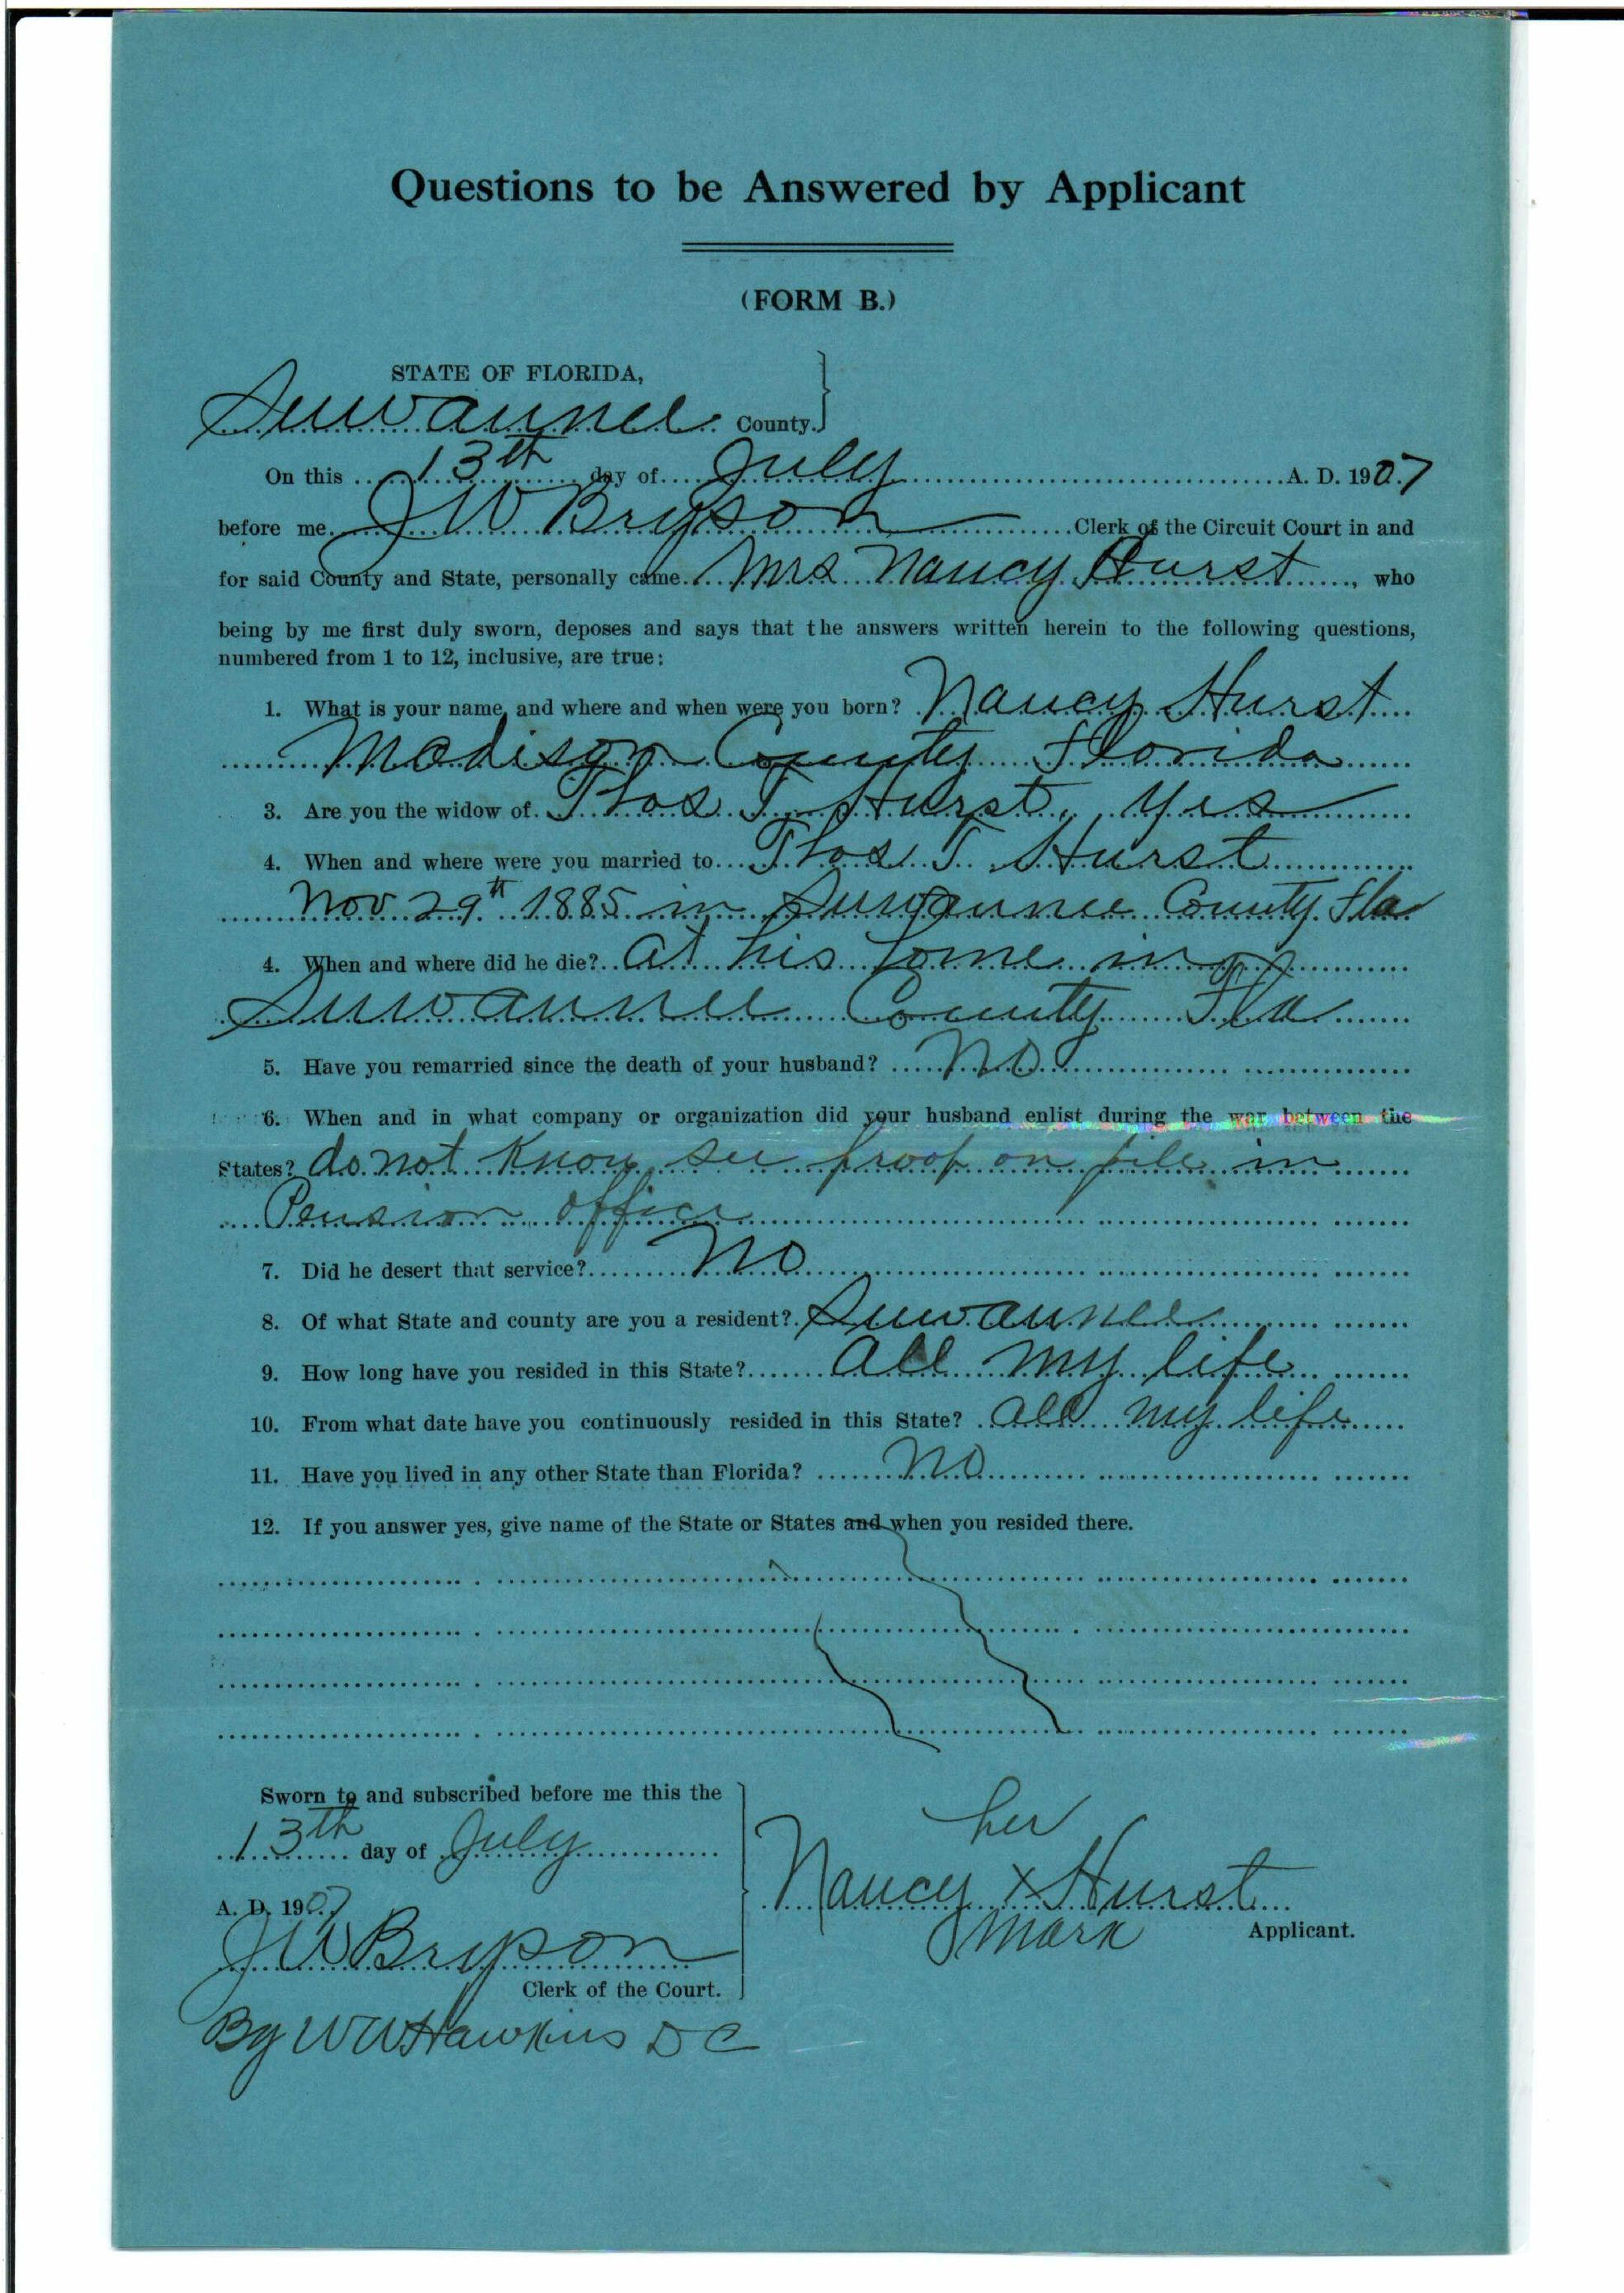 Questions to be Answered by Applicant
(FORM B.)
STATE OF FLORIDA,
Suwannee County.
On this 13th day of July A. D. 1907
before me J W Bryson Clerk of the Circuit Court in and
for said County and State, personally came Mrs Nancy Hurst, who
being by me first duly sworn, deposes and says that the answers written herein to the following questions,
numbered from 1 to 12, inclusive, are true:
1. What is your name, and where and when were you born? Nancy Hurst
Madison County Florida
3. Are you the widow of Thos T. Hurst, Yes
4. When and where were you married to Thos. T. Hurst
Nov 29th 1885 in Suwannee County Fla
4. When and where did he die? at his home in
Suwannee County Fla
5. Have you remarried since the death of your husband? No
6. When and in what company or organization did your husband enlist during the war between the
States? do not know see proof on file in
Pension office
7. Did he desert that service? No
8. Of what State and county are you a resident? Suwannee
9. How long have you resided in this State? All my life
10. From what date have you continuously resided in this State? all my life
11. Have you lived in any other State than Florida? No
12. If you answer yes, give name of the State or States and when you resided there.
Sworn to and subscribed before me this the
13th day of July
A. D. 1907
J W Bryson
Clerk of the Court.
By W W Hawkins D C
her
Nancy x Hurst
mark
Applicant.